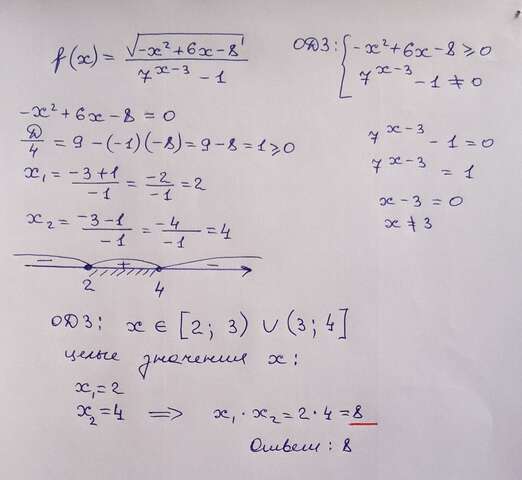 f(x) = √(-x² + 6x - 8) / (7^(x-3) - 1)
ОДЗ: { -x² + 6x - 8 ≥ 0
7^(x-3) - 1 ≠ 0
-x² + 6x - 8 = 0
Д/4 = 9 - (-1)(-8) = 9 - 8 = 1 ≥ 0
x₁ = (-3 + 1)/(-1) = (-2)/(-1) = 2
x₂ = (-3 - 1)/(-1) = (-4)/(-1) = 4
7^(x-3) - 1 = 0
7^(x-3) = 1
x - 3 = 0
x ≠ 3
- + -
2 4
ОДЗ: x ∈ [2; 3) ∪ (3; 4]
целые значения x:
x₁ = 2
x₂ = 4 ⟹ x₁ · x₂ = 2 · 4 = 8
Ответ: 8